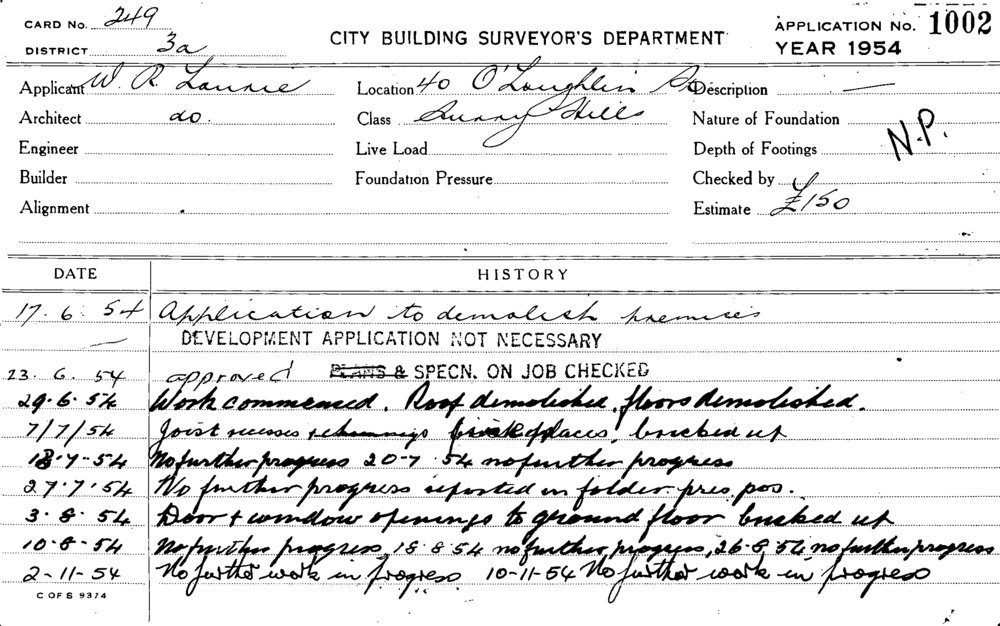 CARD No. 249
DISTRICT 3a
CITY BUILDING SURVEYOR'S DEPARTMENT
APPLICATION No. 1002
YEAR 1954
Applicant W. R. Laurie Location 40 O'Loughlin St Description —
Architect do. Class Surry Hills Nature of Foundation
Engineer Live Load Depth of Footings N.P.
Builder Foundation Pressure Checked by
Alignment Estimate £150
DATE HISTORY
17.6.54 Application to demolish premises
— DEVELOPMENT APPLICATION NOT NECESSARY
23.6.54 approved PLANS & SPECN. ON JOB CHECKED
29.6.54 Work commenced. Roof demolished, floors demolished.
7/7/54 Joist recesses + bricked up
13.7-54 No further progress 20-7.54 no further progress
27.7.54 No further progress reported in folder. pres. pos.
3.8.54 Door + window openings to ground floor bricked up
10-8-54 No further progress, 18.8.54 no further progress, 26.8.54 no further progress
2-11-54 No further work in progress 10-11-54 No further work in progress
C OF S 9374